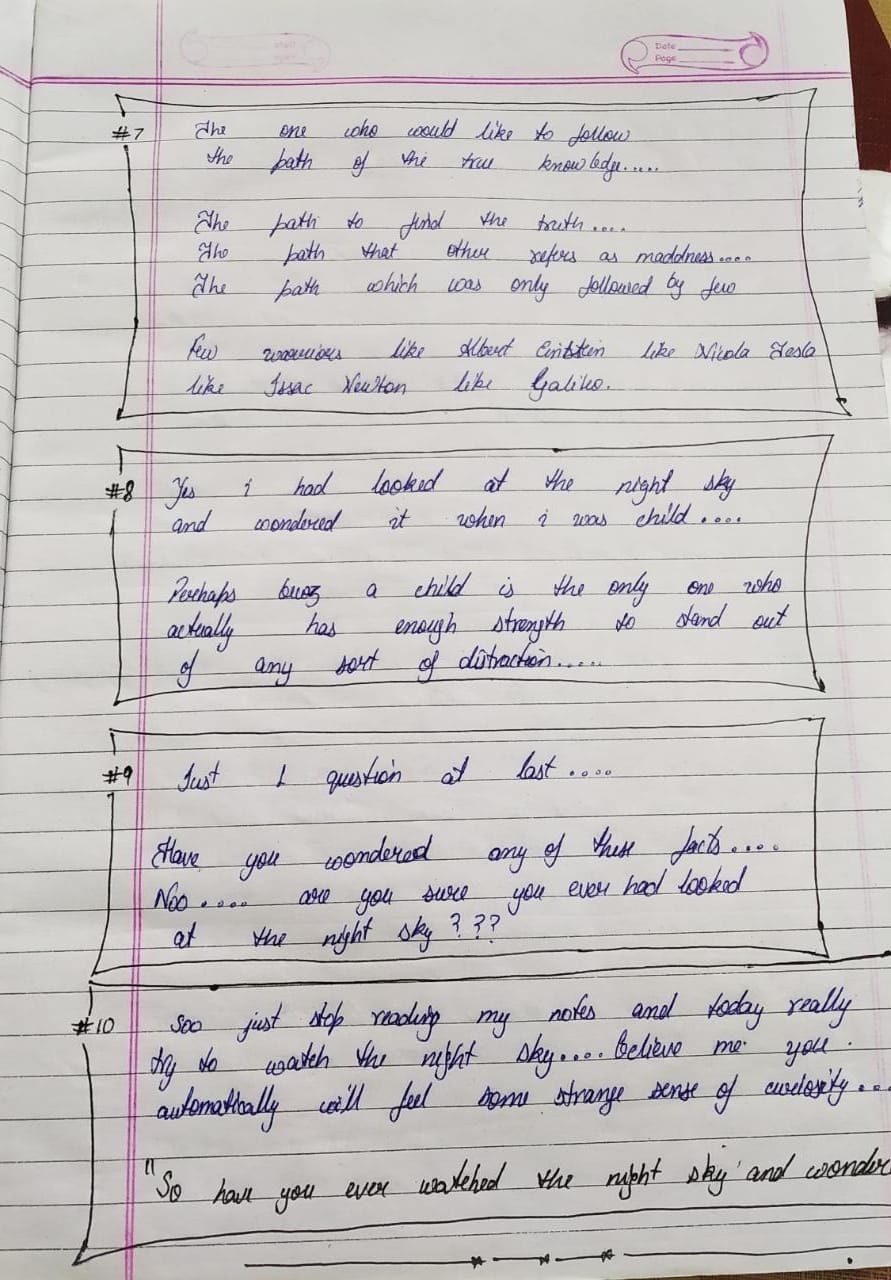 Date
Page
#7 The one who would like to follow
the path of the true knowledge.....
The path to find the truth....
The path that other refers as maddness....
The path which was only followed by few
Few warriors like Albert Eintstein like Nicola Tesla
like Issac Newton like Galileo.
#8 Yes i had looked at the night sky
and wondered it when i was child....
Perhaps buoz a child is the only one who
actually has enough strength to stand out
of any sort of distraction.....
#9 Just 1 question at last....
Have you wondered any of these facts....
Noo.... are you sure you ever had looked
at the night sky ???
#10 Soo just stop reading my notes and today really
try to watch the night sky.... Believe me you
automatically will feel some strange sense of curiosity...
"So have you ever watched the night sky and wonder